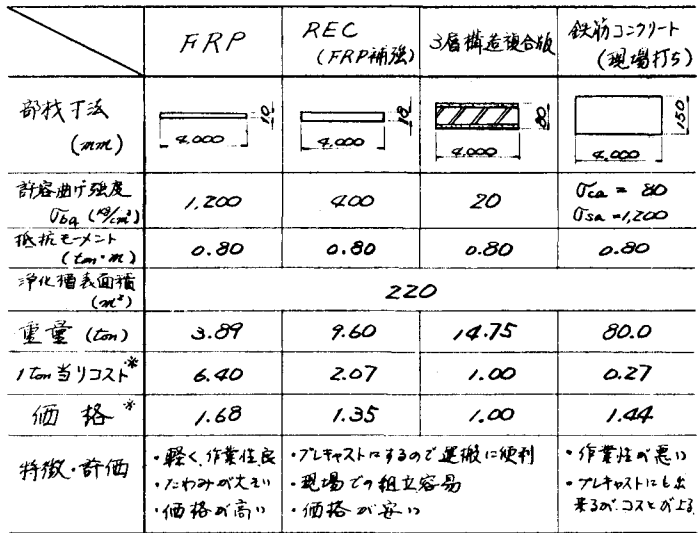 FRP
REC
(FRP補強)
3層構造複合版
鉄筋コンクリート
(現場打ち)
部材寸法
(mm)
4,000
10
4,000
18
4,000
80
4,000
150
許容曲げ強度
σba (kg/cm²)
1,200
400
20
σca = 80
σsa = 1,200
抵抗モーメント
(ton・m)
0.80
0.80
0.80
0.80
浄化槽表面積
(m²)
220
重量 (ton)
3.89
9.60
14.75
80.0
1ton当りコスト※
6.40
2.07
1.00
0.27
価格※
1.68
1.35
1.00
1.44
特徴・評価
・軽く、作業性良
・たわみが大きい
・価格が高い
・プレキャストにするので運搬に便利
・現場での組立容易
・価格が安い
・作業性が悪い
・プレキャストにも出
来るが、コストが上る